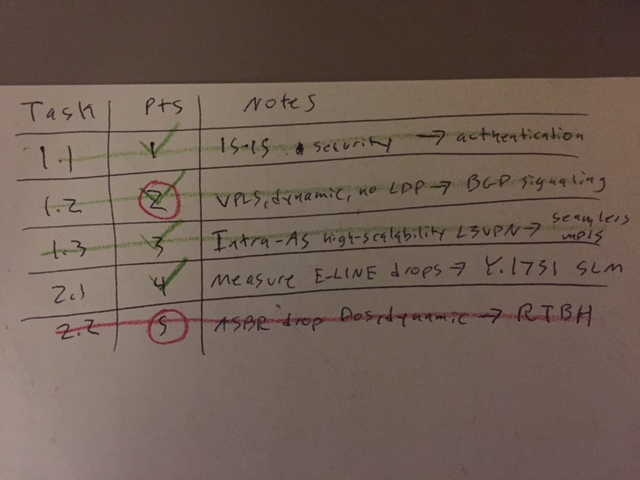 Task Pts Notes
1.1 1 IS-IS security → authentication
1.2 2 VPLS, dynamic, no LDP → BGP signaling
1.3 3 Intra-AS high-scalability L3VPN → seamless mpls
2.1 4 Measure E-LINE drops → Y.1731 SLM
2.2 5 ASBR drop DoS, dynamic → RTBH